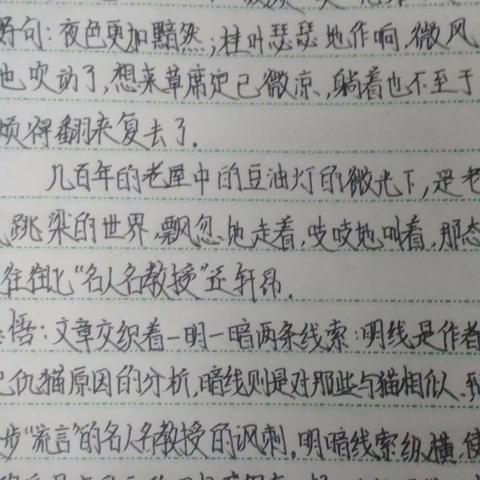 好句：夜色更加黯然，桂叶瑟瑟地作响，微风
也吹动了，想来草席定已微凉，躺着也不至于
烦得翻来复去了.
几百年的老屋中的豆油灯的微光下，是老
跳梁的世界，飘忽地走着，吱吱地叫着，那态
往往比“名人名教授”还轩昂.
悟：文章交织着一明一暗两条线索：明线是作者
仇猫原因的分析，暗线则是对那些与猫相似、
步“流言”的名人名教授的讽刺.明暗线索纵横，使